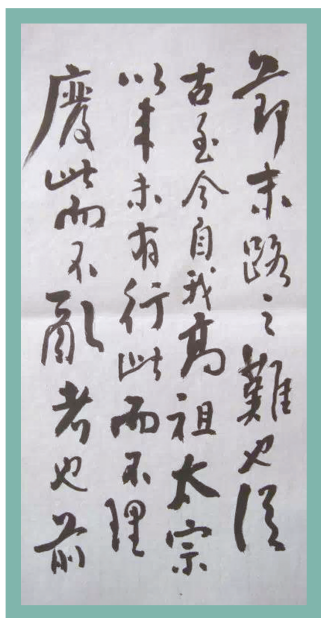 節末路之難也從
古至今自我高祖太宗
以来未有行此而不理
廢此而不亂者也前